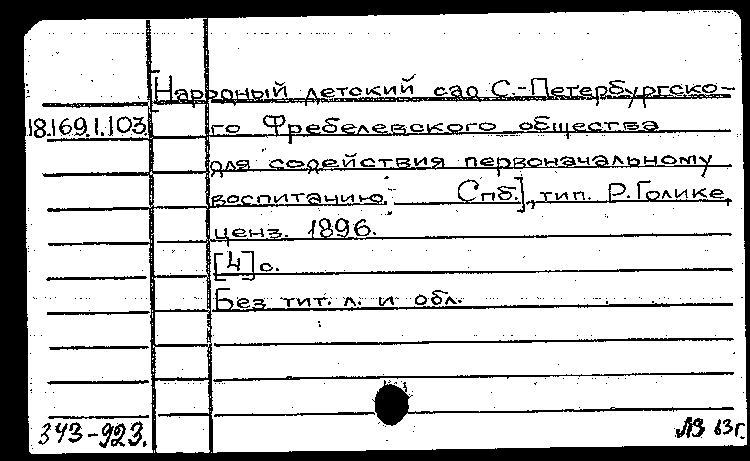 [Народный детский сад С.-Петербургско-
18.169.1.103
го Фребелевского общества
для содействия первоначальному
воспитанию. Спб.], тип. Р. Голике,
ценз. 1896.
[4] с.
Без тит. л. и обл.
343-923.
ЛЗ 63г.